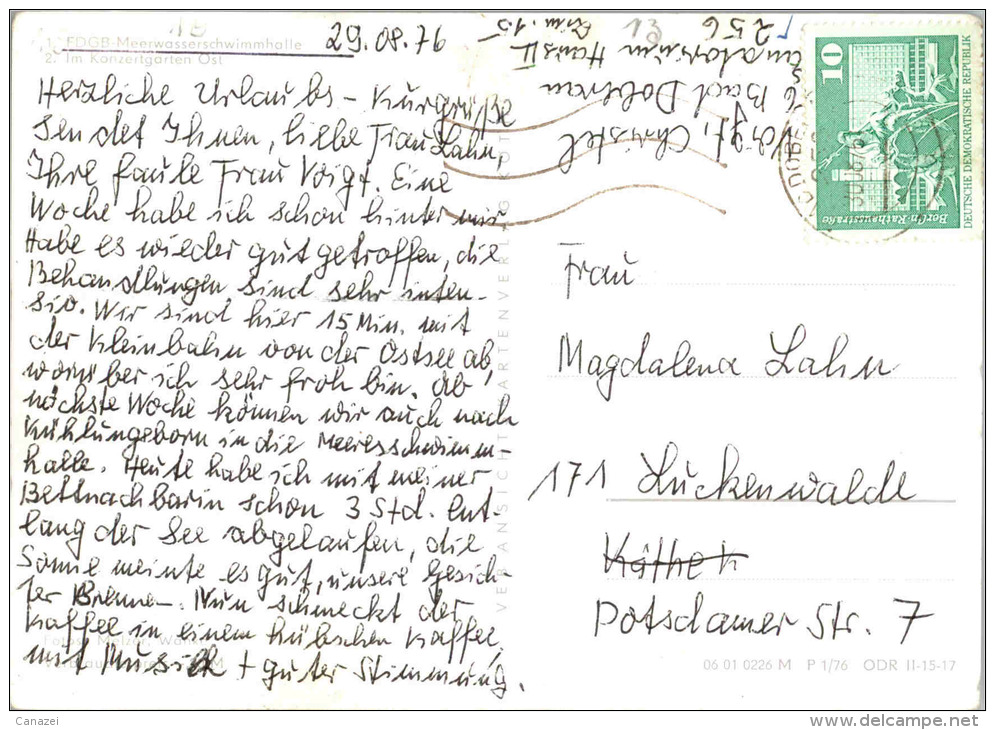 1. FDGB-Meerwasserschwimmhalle
2. Im Konzertgarten Ost
29.08.76
Herzliche Urlaubs-Kurgrüße
sendet Ihnen, liebe Frau Lahn,
Ihre faule Frau Voigt. Eine
Woche habe ich schon hinter mir
Habe es wieder gut getroffen, die
Behandlungen sind sehr inten-
siv. Wir sind hier 15 Min. mit
der Kleinbahn von der Ostsee ab,
worüber ich sehr froh bin. Ab
nächste Woche können wir auch nach
Kühlungsborn in die Meeresschwimm-
halle. Heute habe ich mit meiner
Bettnachbarin schon 3 Std. ent-
lang der See abgelaufen, die
Sonne meinte es gut, unsere Gesich-
ter Brennen. Nun schmeckt der
Kaffee in einem hübschen Kaffee
mit Musik + guter Stimmung.
Voigt, Christel
Bad Doberan
Sanatorium Haus II
256
13
VERB ANSICHTSKARTENVERLAG
10
Berlin-Rathausstraße
DEUTSCHE DEMOKRATISCHE REPUBLIK
Frau
Magdalena Lahn
171 Luckenwalde
Käthe K
Potsdamer Str. 7
06 01 0226 M P 1/76 ODR II-15-17
Canazei
www.delcampe.net